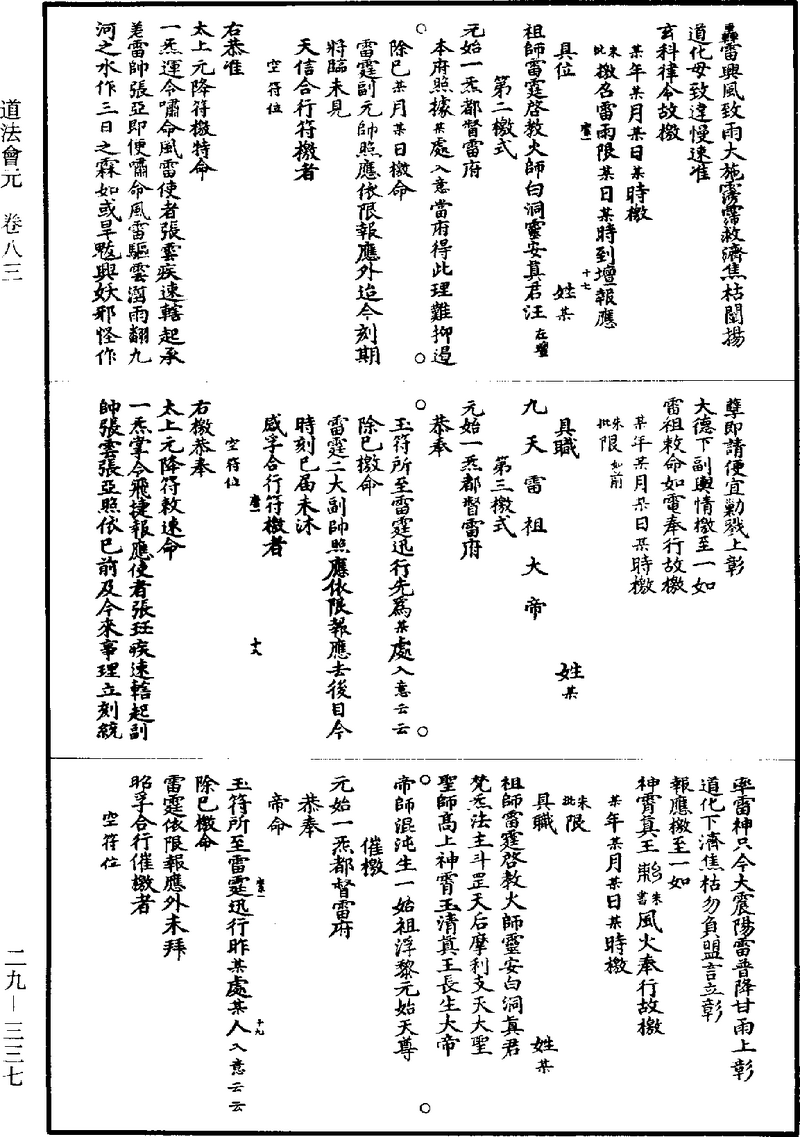 道法會元 卷八三
轟雷興風致雨大施霶霈救濟焦枯闡揚
道化毋致違慢速准
玄科律令故檄
某年某月某日某時檄
朱批 檄召雷雨限某日某時到壇報應
具位 姓某
祖師雷霆啓教火師白洞靈安真君汪 在壇
第二檄式
元始一炁都督雷府
本府照據某處入意當府得此理難抑遏
除已某月某日檄命
雷霆副元帥照應依限報應外迨今刻期
將臨未見
天信合行符檄者
空符位
右恭准
太上元降符檄特命
一炁運令嘯命風雷使者張雲疾速轄起承
差雷帥張亞即便嘯命風雷驅雲澍雨翻九
河之水作三日之霖如或旱魃興妖邪怪作
孽即請便宜勦戮上彰
大德下副輿情檄至一如
雷祖敕命如電奉行故檄
某年某月某日某時檄
朱批 限如前
具職 姓某
九天雷祖大帝
第三檄式
元始一炁都督雷府
恭奉
玉符所至雷霆迅行先爲某處入意云云
除已檄命
雷霆二大副帥照應依限報應去後目今
時刻已届未沐
感孚合行符檄者
空符位
右檄恭奉
太上元降符敕速命
一炁掌令飛捷報應使者張珏疾速轄起副
帥張雲張亞照依已前及今來事理立刻統
率雷神只今大震陽雷普降甘雨上彰
道化下濟焦枯勿負盟言立彰
報應檄至一如
神霄真王 朱書 風火奉行故檄
某年某月某日某時檄
朱批 限
具職 姓某
祖師雷霆啓教火師靈安白洞真君
梵炁法主斗罡天后摩利支天大聖
聖師高上神霄玉清真王長生大帝
帝師混沌生一始祖浮黎元始天尊
催檄
元始一炁都督雷府
恭奉
帝命
玉符所至雷霆迅行昨某處某人入意云云
除已檄命
雷霆依限報應外未拜
昭孚合行催檄者
空符位
二九—三三七